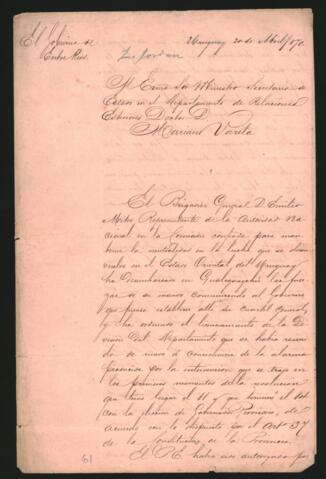 El Gobierno de
Entre Rios.
Uruguay 20 de Abril/870.
Al Exmo Sor Ministro Secretario de
Estado en el Departamento de Relaciones
Exteriores Doctor D.
Mariano Varela
El Brigadier General D. Emilio
Mitre Representante de la Autoridad Na
cional en la Comision confiada para man
tener la neutralidad en la lucha que se
en el Estado Oriental del Uruguay
ha desembarcado en Gualeguaychú
de su mano comunicando al Gobierno
que piensa establecer allí su cuartel general,
y ha ordenado el licenciamiento de la Di
vision del Departamento que se habia reuni
do de nuevo á consecuencia de la alarma
por la intervencion que se trajo en
los primeros momentos de la revolucion
que tuvo lugar el 11 y que terminó el
con la eleccion de Gobernador Provisorio, de
acuerdo con lo dispuesto por el Artº 37
de la Constitucion de la Provincia.
El P.E. habia sido autorizado por
61